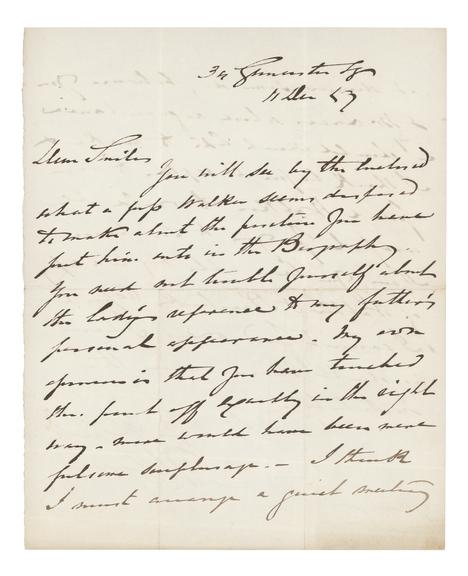 34 Gloucester Sq
11 Dec 57
Dear Smiles
You will see by the Enclosed
what a fuss Walker seems disposed
to make about the position you have
put him into in the Biography.
You need not trouble yourself about
the lady's reference to my father's
personal appearance. My own
opinion is that you have touched
the point off exactly in the right
way - more would have been mere
fulsome surplusage. - I think
I must arrange a quiet meeting